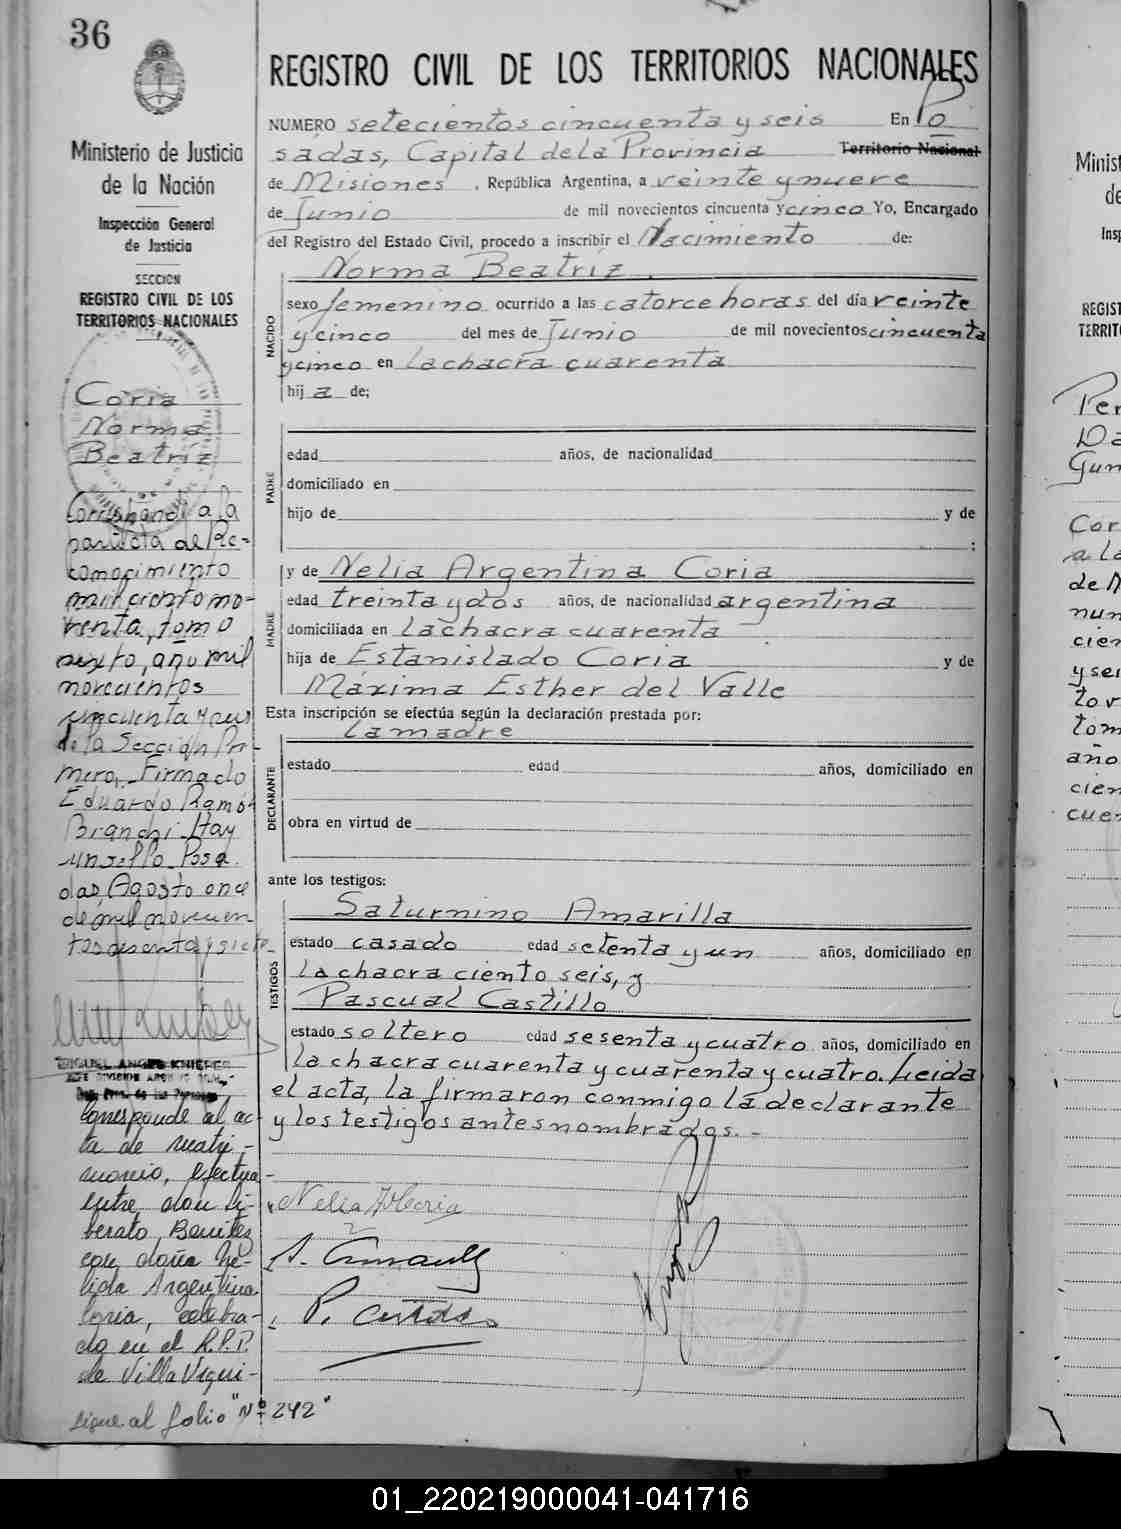 36
Ministerio de Justicia
de la Nación
Inspección General
de Justicia
SECCION
REGISTRO CIVIL DE LOS
TERRITORIOS NACIONALES
Coria
Norma
Beatríz
a la
de Re-
conocimiento
mil ciento no-
venta, tomo
sexto, año mil
novecientos
cincuenta y seis
de la Sección Pri-
mera, Firmado
Eduardo Ramón
Bianchi. Hay
un sello. Posa
das, Agosto once
de mil novecien
tos sesenta y siete
MIGUEL ANGEL KNIERER
Corresponde al ac-
ta de matri-
monio, efectua
entre don Li-
berato Benites
con doña Ne-
lida Argentina
Coria, celebra-
do en el R.P.P.
de Villa Urqui-
sigue al folio "Nº 242"
REGISTRO CIVIL DE LOS TERRITORIOS NACIONALES
NUMERO setecientos cincuenta y seis En Po
sadas, Capital de la Provincia Territorio Nacional
de Misiones, República Argentina, a veinte y nueve
de Junio de mil novecientos cincuenta y cinco Yo, Encargado
del Registro del Estado Civil, procedo a inscribir el Nacimiento de:
Norma Beatríz
NACIDO
sexo femenino ocurrido a las catorce horas del día veinte
y cinco del mes de Junio de mil novecientos cincuenta
y cinco en la chacra cuarenta
hij a de;
PADRE
edad años, de nacionalidad
domiciliado en
hijo de y de
;
y de Nelia Argentina Coria
MADRE
edad treinta y dos años, de nacionalidad argentina
domiciliada en la chacra cuarenta
hija de Estanislado Coria y de
Máxima Esther del Valle
Esta inscripción se efectúa según la declaración prestada por:
la madre
DECLARANTE
estado edad años, domiciliado en
obra en virtud de
ante los testigos:
Saturnino Amarilla
TESTIGOS
estado casado edad setenta y un años, domiciliado en
la chacra ciento seis, y
Pascual Castillo
estado soltero edad sesenta y cuatro años, domiciliado en
la chacra cuarenta y cuarenta y cuatro. Leida
el acta, la firmaron conmigo la declarante
y los testigos antes nombrados. -
Nelia A Coria
01_220219000041-041716
Minist
de
Insp
REGIST
TERRIT
Per
Da
Gum
Cor
a la
de N
nun
cien
y sei
to v
tom
año
cien
cuen